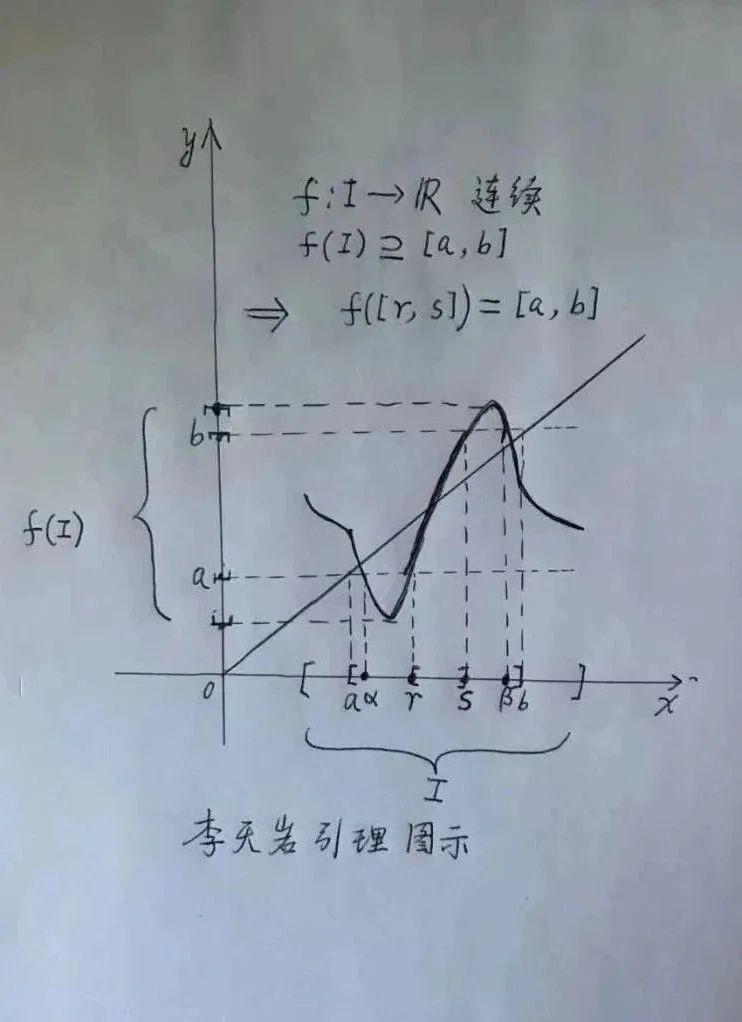 y
f:I→ℝ 连续
f(I)⊇[a,b]
⇒ f([r,s])=[a,b]
b
f(I)
a
0
a α r s β b
x
I
李天岩引理图示